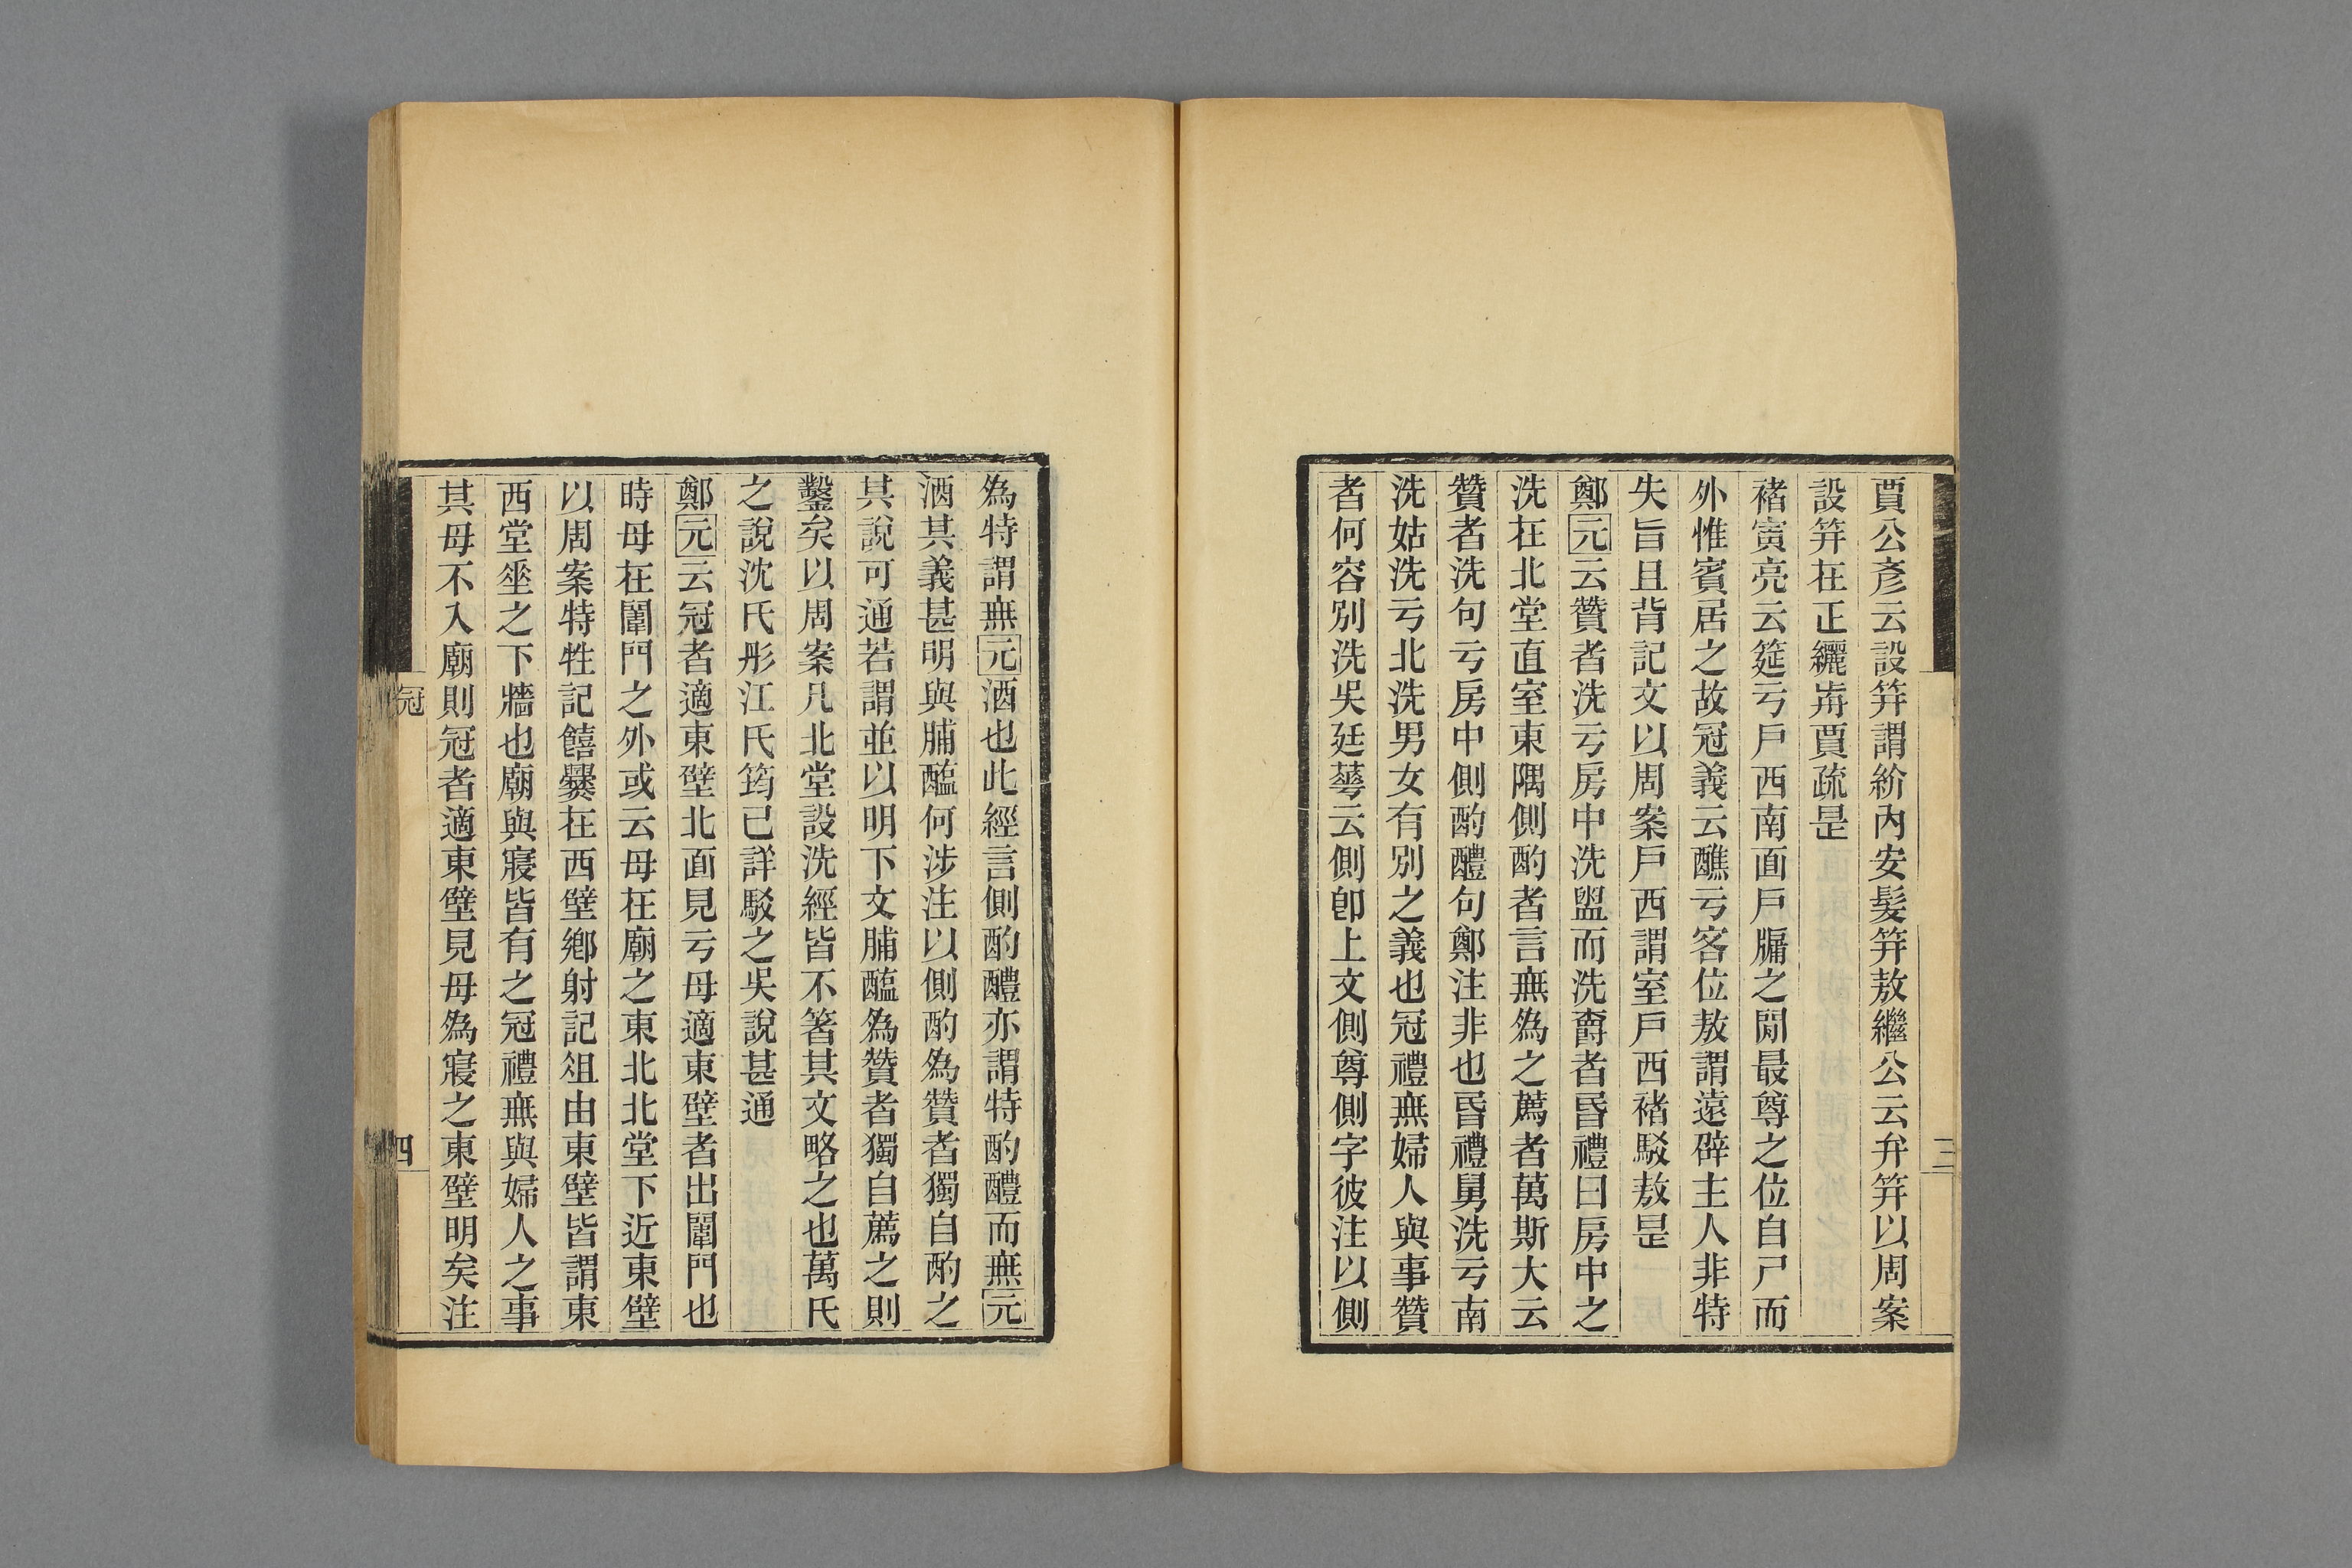 賈公彥云設笄謂紒內安髮笄敖繼公云弁笄以周案
設笄在正纚歬賈疏是
褚寅亮云筵亏戶西南面戶牖之閒最尊之位自尸而
外惟賓居之故冠義云醮亏客位敖謂遠辟主人非特
失旨且背記文以周案戶西謂室戶西褚駁敖是
鄭元云贊者洗亏房中洗盥而洗爵者昏禮曰房中之
洗在北堂直室東隅側酌者言無為之薦者萬斯大云
贊者洗句亏房中側酌醴句鄭注非也昏禮舅洗亏南
洗姑洗亏北洗男女有別之義也冠禮無婦人與事贊
者何容別洗吳廷蕚云側卽上文側尊側字彼注以側
三
為特謂無元酒也此經言側酌醴亦謂特酌醴而無元
酒其義甚明與脯醢何涉注以側酌為贊者獨自酌之
其說可通若謂並以明下文脯醢為贊者獨自薦之則
鑿矣以周案凡北堂設洗經皆不箸其文略之也萬氏
之說沈氏彤江氏筠已詳駁之吳說甚通
鄭元云冠者適東壁北面見亏母適東壁者出闈門也
時母在闈門之外或云母在廟之東北北堂下近東壁
以周案特牲記饎爨在西壁鄉射記俎由東壁皆謂東
西堂坐之下牆也廟與寢皆有之冠禮無與婦人之事
其母不入廟則冠者適東壁見母為寢之東壁明矣注
冠
四